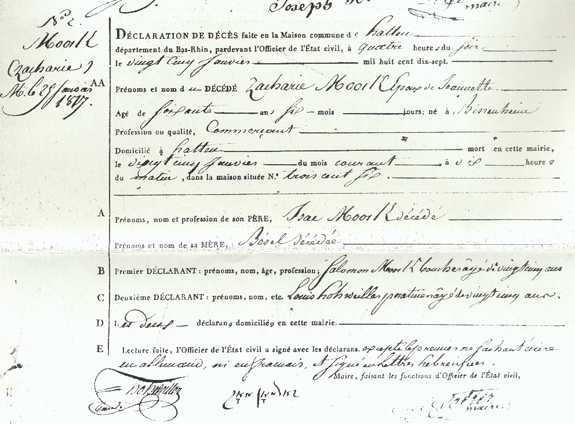 Joseph M
maire
N.º 2.
DÉCLARATION DE DÉCÈS faite en la Maison commune d hatten
Moock
département du Bas-Rhin, pardevant l'Officier de l'État civil, à quatre heures du soir
Zacharie
le vingt cinq janvier mil huit cent dix-sept.
M. le 25 Janvier
1817.
AA Prénoms et nom d u DÉCÉDÉ Zacharie Moock Epoux de Jeannette
Agé de soixante ans six mois jours; né à
Profession ou qualité, Commerçant
Domicilié à hatten mort en cette mairie,
le vingt cinq janvier du mois courant à dix heures
du matin, dans la maison située N.º trois cent six
A Prénoms, nom et profession de son PÈRE, Isac Moock décédé
Prénoms et nom de sa MÈRE, Bésel décédée
B Premier DÉCLARANT: prénoms, nom, âge, profession; Salomon Moock boucher âgé de vingt cinq ans
C Deuxième DÉCLARANT: prénoms, nom, etc. Louis âgé de vingt cinq ans
D Les deux déclarans domiciliés en cette mairie.
E Lecture faite, l'Officier de l'État civil a signé avec les déclarans. excepté le premier ne sachant écrire
en allemand, ni en français, et signé en lettres hebraïques.
Maire, faisant les fonctions d'Officier de l'État civil,
maire